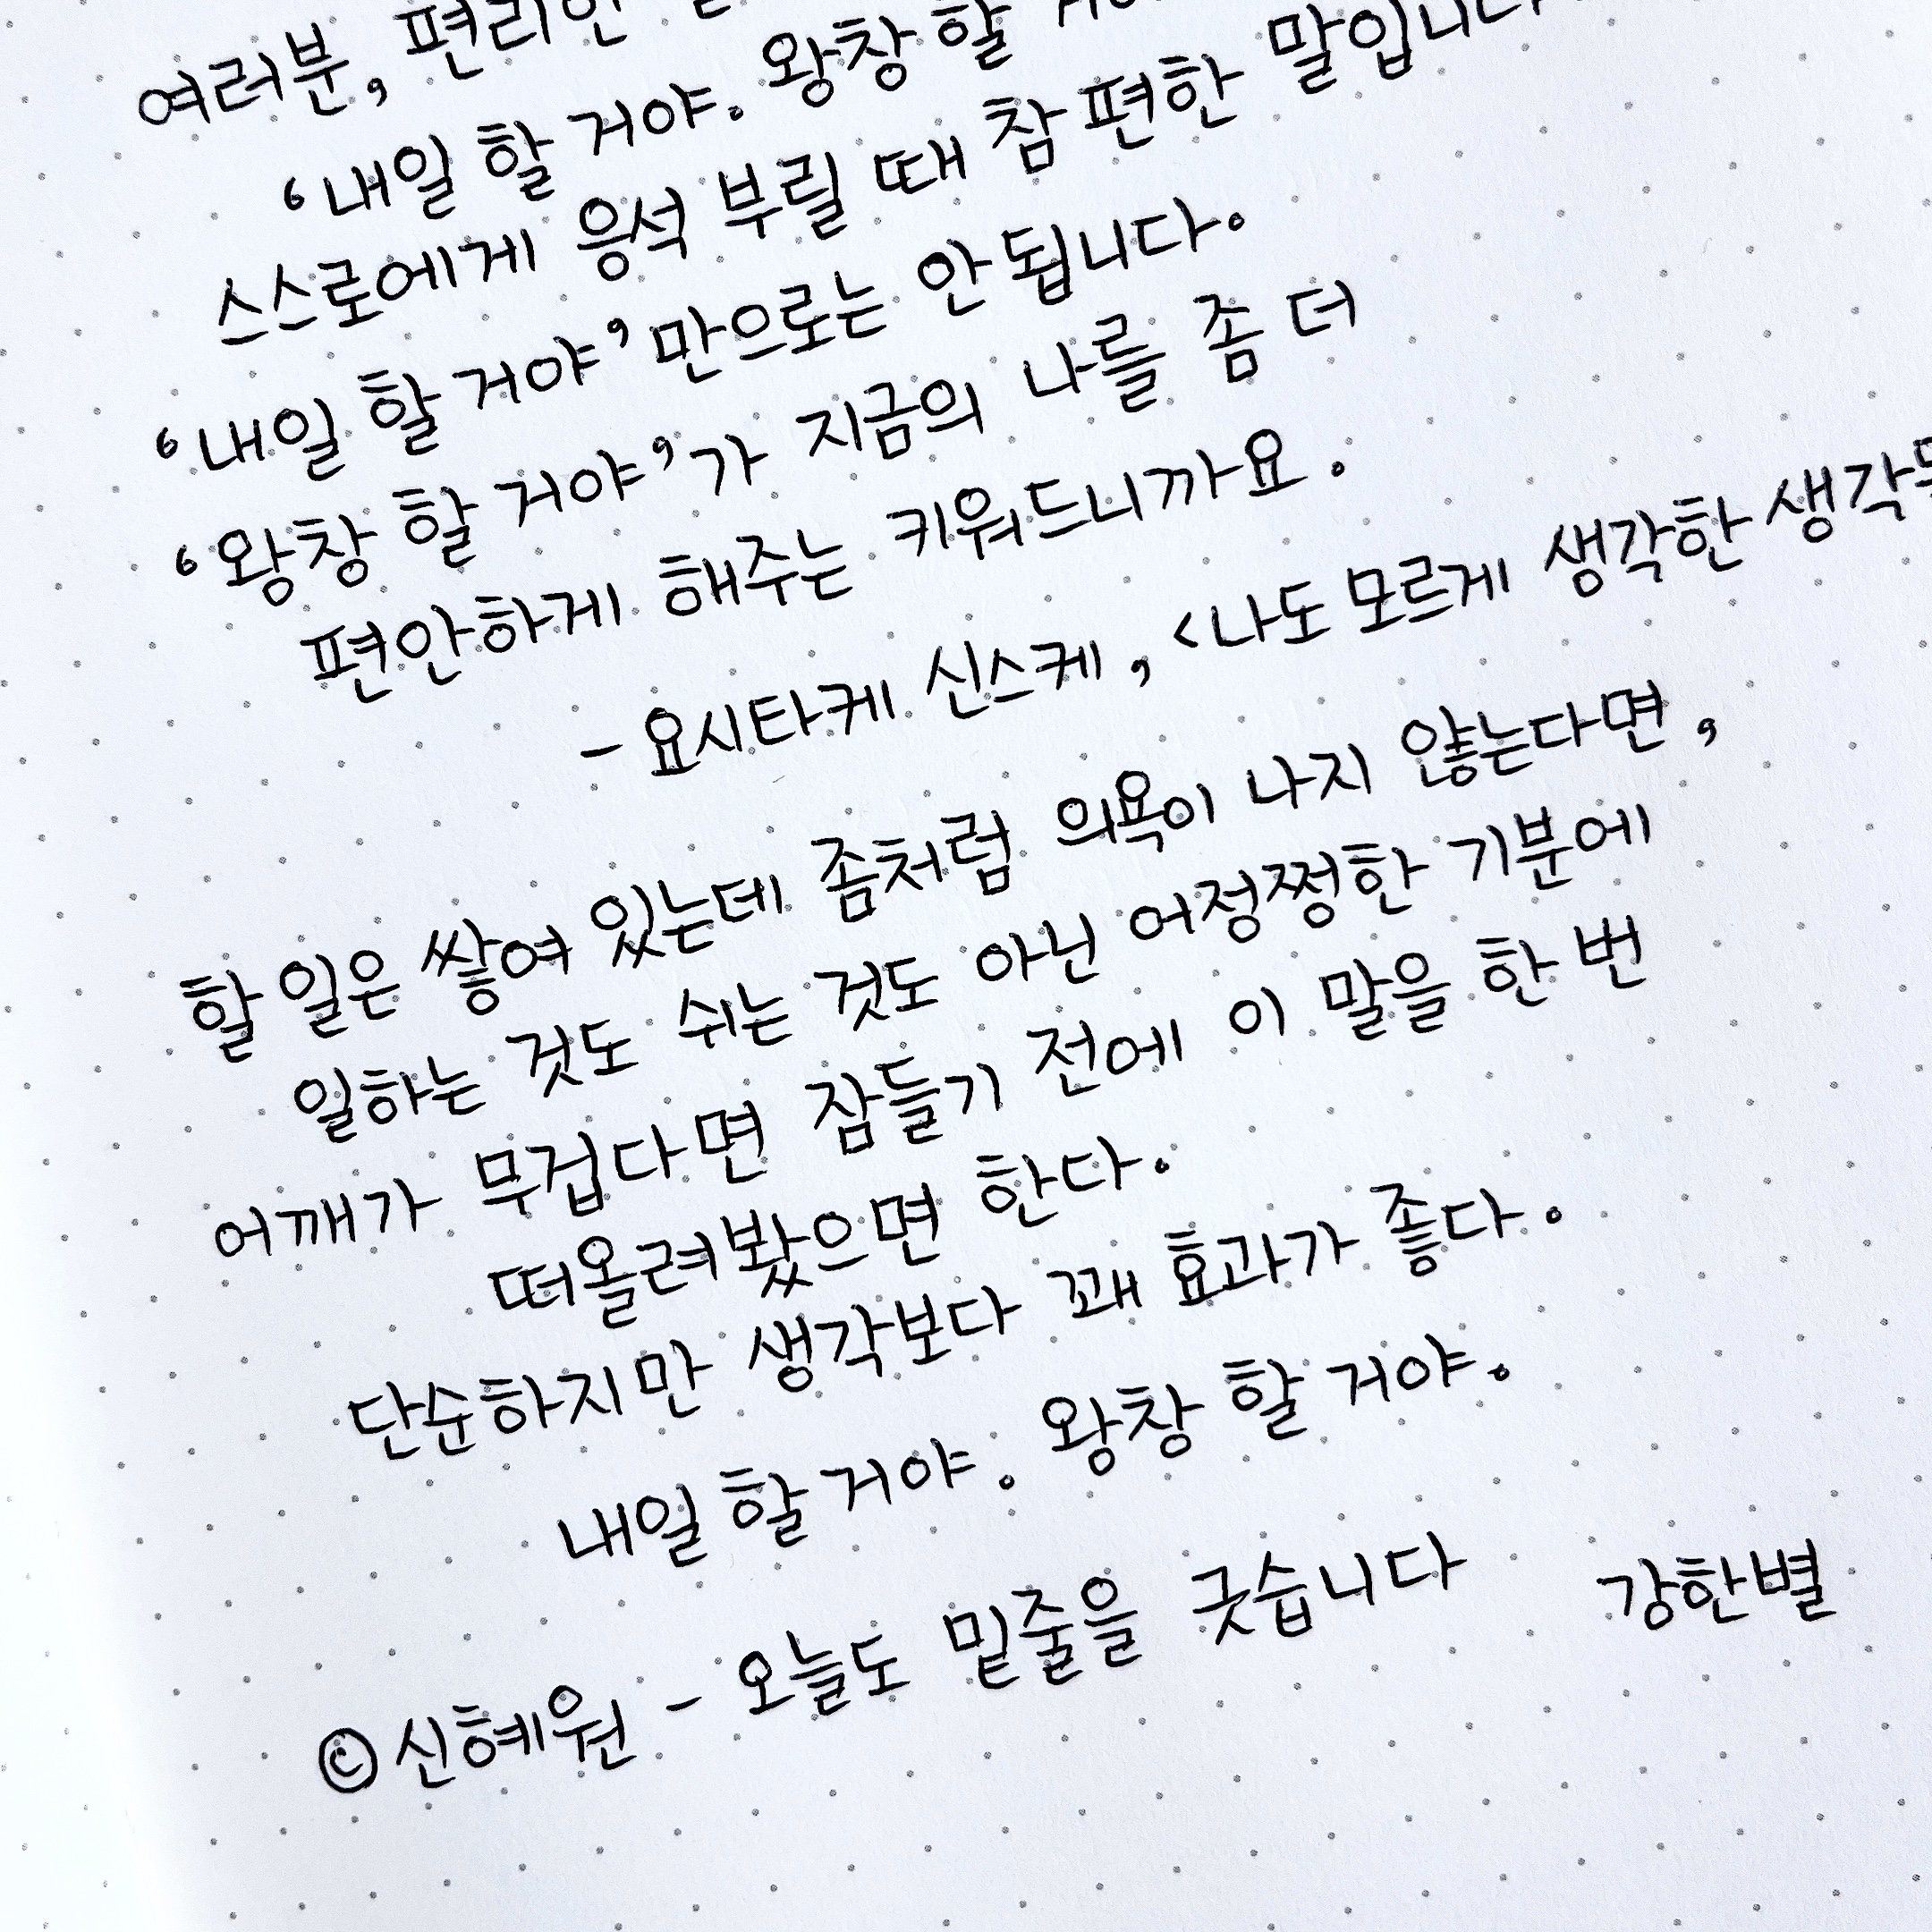 여러분, 편리한
'내일 할 거야. 왕창 할
스스로에게 응석 부릴 때 참 편한 말입니다.
'내일 할 거야'만으로는 안 됩니다.
'왕창 할 거야'가 지금의 나를 좀 더
편안하게 해주는 키워드니까요.
- 요시타케 신스케, <나도 모르게 생각한 생각
할 일은 쌓여 있는데 좀처럼 의욕이 나지 않는다면,
일하는 것도 쉬는 것도 아닌 어정쩡한 기분에
어깨가 무겁다면 잠들기 전에 이 말을 한 번
떠올려봤으면 한다.
단순하지만 생각보다 꽤 효과가 좋다.
내일 할 거야. 왕창 할 거야.
©신혜원 - 오늘도 밑줄을 긋습니다 강한별